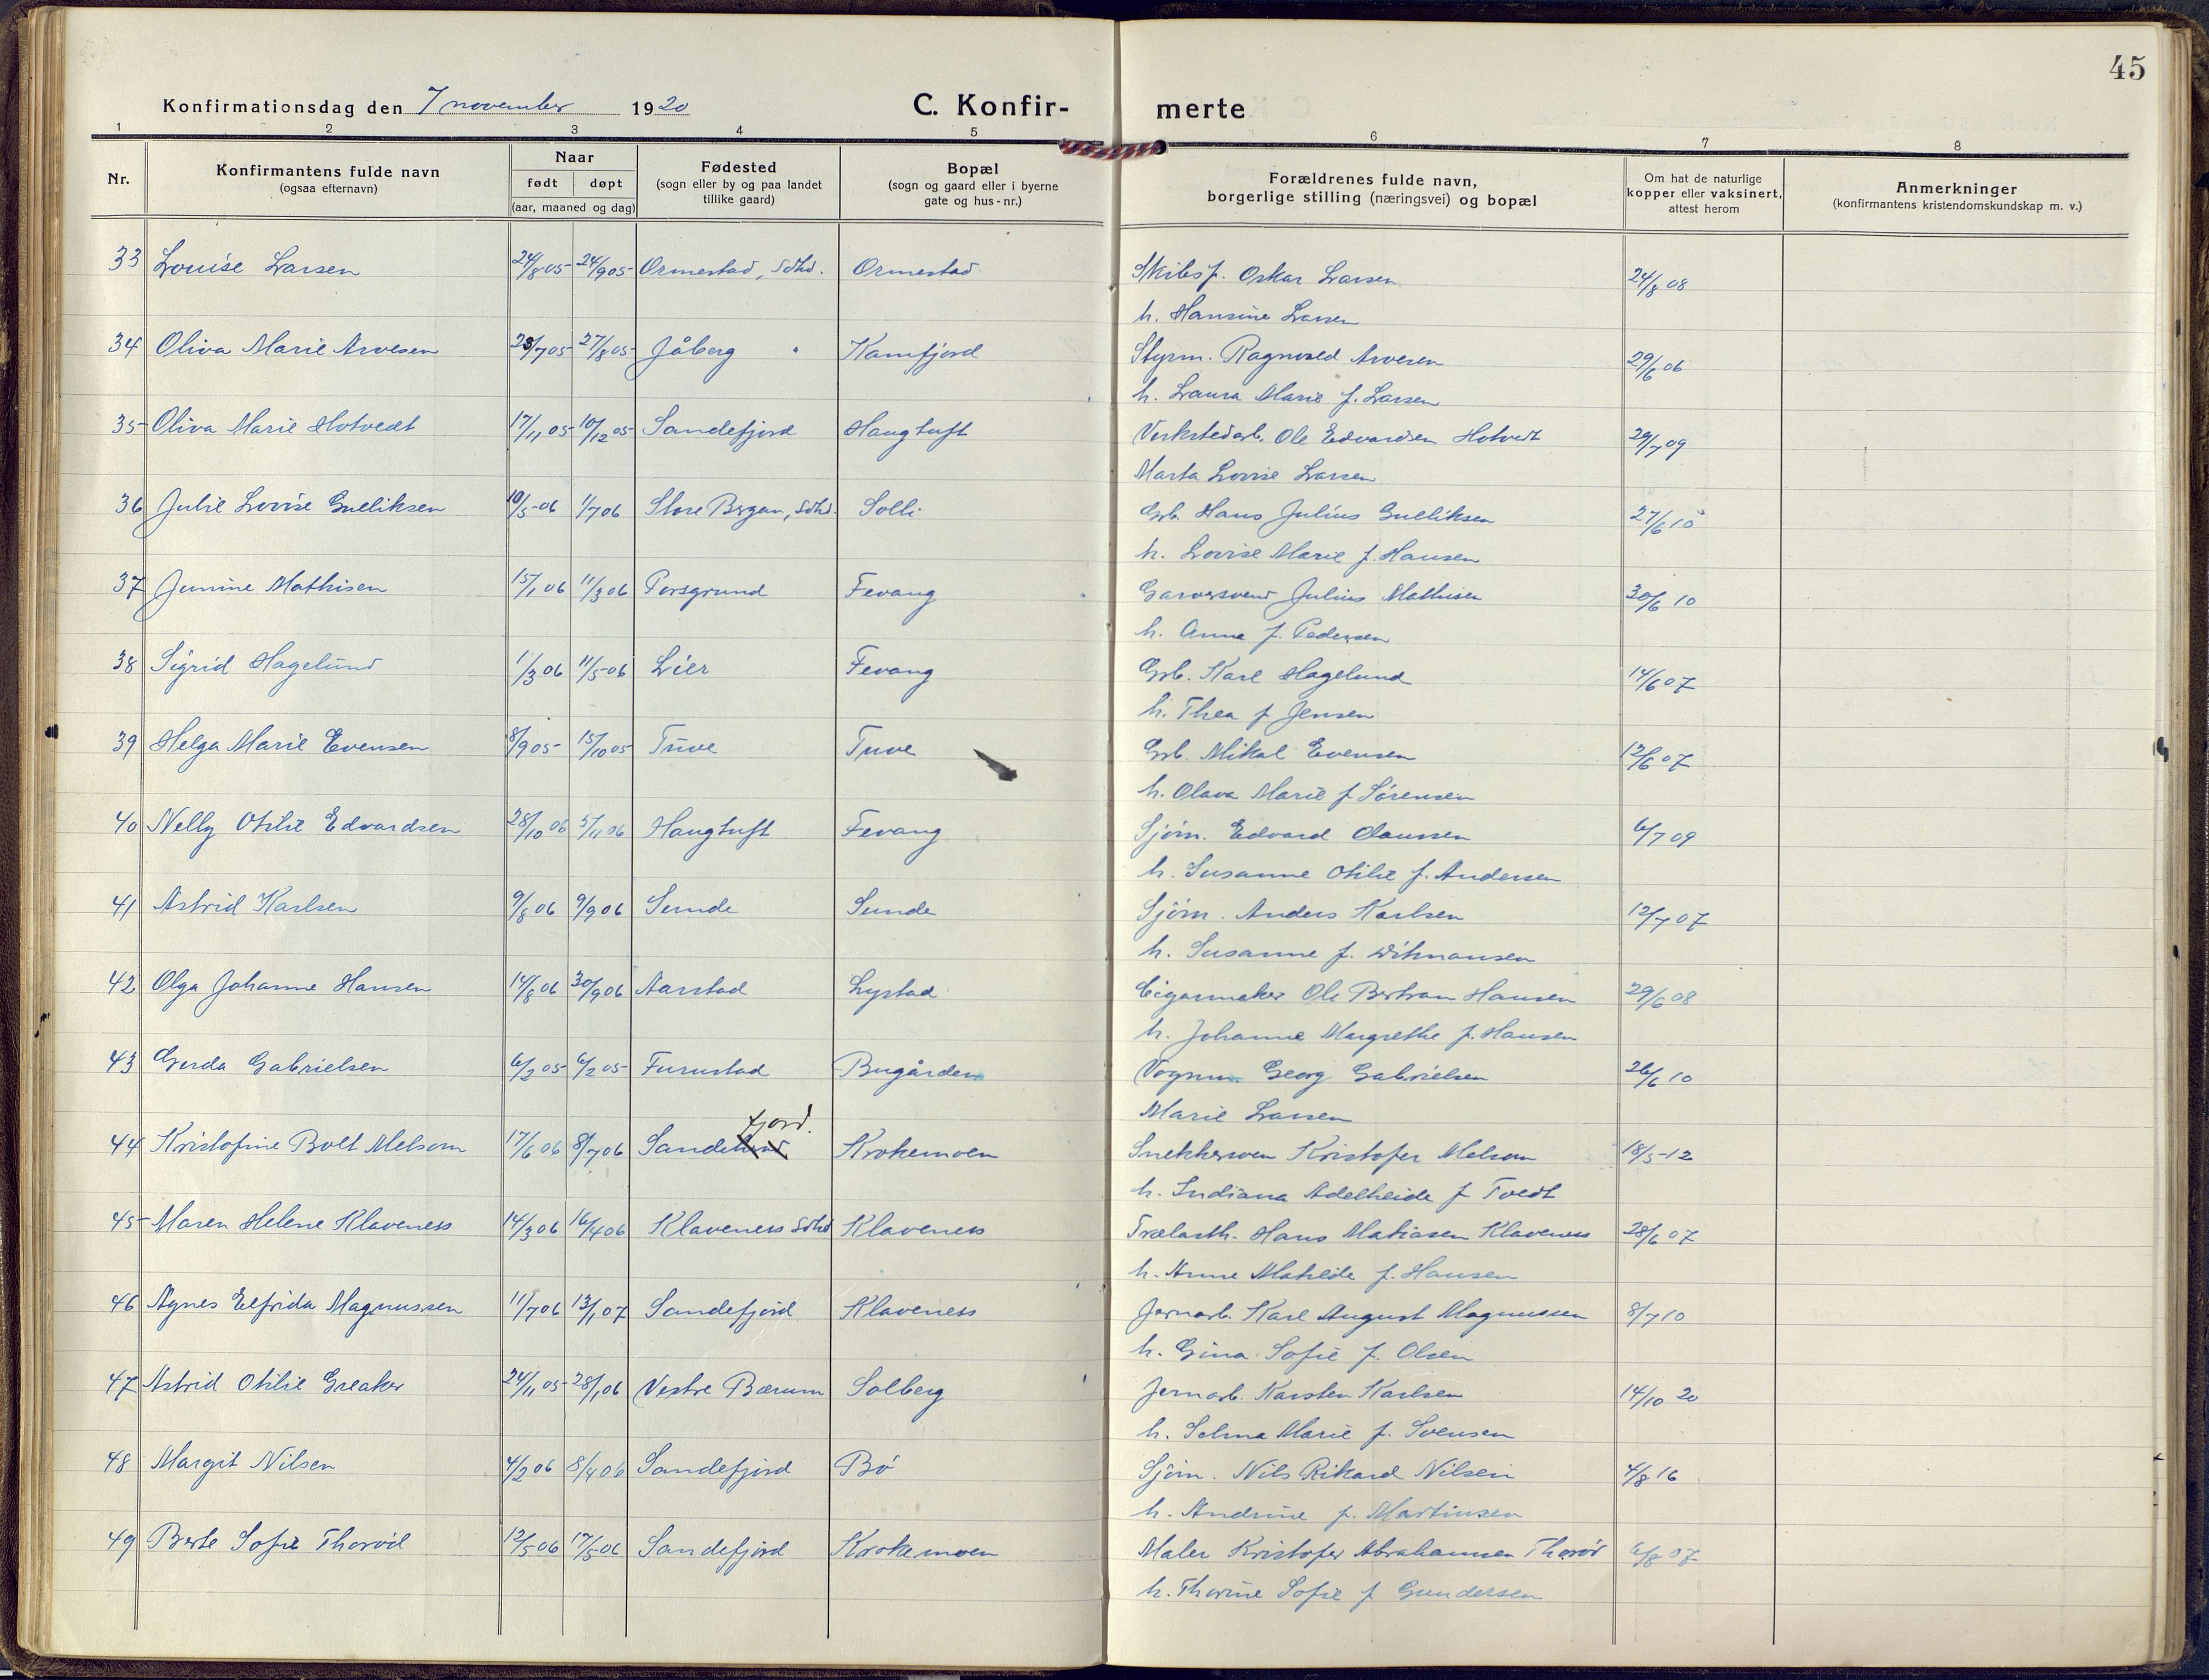 45
Konfirmationsdag den 7 november 1920
C. Konfir- merte
1 2 3 4 5 6 7 8
Nr.
Konfirmantens fulde navn
(ogsaa efternavn)
Naar
født døpt
(aar, maaned og dag)
Fødested
(sogn eller by og paa landet
tillike gaard)
Bopæl
(sogn og gaard eller i byerne
gate og hus-nr.)
Forældrenes fulde navn,
borgerlige stilling (næringsvei) og bopæl
Om hat de naturlige
kopper eller vaksinert,
attest herom
Anmerkninger
(konfirmantens kristendomskundskap m. v.)
33 Louise Larsen 24/8 05 24/9 05 Ormestad, Sdhd. Ormestad Skibsf. Oskar Larsen 24/8 08
h. Hansine Larsen
34 Oliva Marie Arvesen 28/7 05 27/8 05 Jåberg " Kamfjord Styrm. Ragnvald Arvesen 29/6 06
h. Laura Marie f. Larsen
35 Oliva Marie Hotvedt 17/11 05 10/12 05 Sandefjord Haugtuft Verkstedarb. Ole Edvardsen Hotvedt 29/7 09
Marta Lovise Larsen
36 Julie Lovise Gulliksen 10/5 06 1/7 06 Store Bergan, Sdhd. Solli Grb. Hans Julius Gulliksen 27/6 10
h. Lovise Marie f. Hansen
37 Junine Mathisen 15/1 06 11/3 06 Porsgrund Fevang Garversvend Julius Mathisen 30/6 10
h. Anna f. Pedersen
38 Sigrid Hagelund 1/3 06 11/5 06 Lier Fevang Grb. Karl Hagelund 14/6 07
h. Thea f Jensen
39 Helga Marie Evensen 8/9 05 15/10 05 Tuve Tuve Grb. Mikal Evensen 12/6 07
h. Olava Marie f Sørensen
40 Nelly Otilie Edvardsen 28/10 06 5/11 06 Haugtuft Fevang Sjøm. Edvard Claussen 6/7 09
h. Susanne Otilie f. Andersen
41 Astrid Karlsen 9/8 06 9/9 06 Sunde Sunde Sjøm. Anders Karlsen 12/7 07
h. Susanne f.
42 Olga Johanne Hansen 14/8 06 30/9 06 Aarstad Lystad Cigarmaker Ole Bertran Hansen 29/6 08
h. Johanne Margrethe f. Hansen
43 Gerda Gabrielsen 6/2 05 6/2 05 Furustad Bugården Vognm. Georg Gabrielsen 26/6 10
Marie Larsen
44 Kristofine Bolt Melsom 17/6 06 8/7 06 Sandefjord. Krokemoen Snekkersven Kristofer Melsom 18/5 12
h. Indiana Adelheide f Tvedt
45 Maren Helene Klaveness 14/3 06 16/4 06 Klaveness Sdhd Klaveness Trælasth. Hans Matiasen Klaveness 28/6 07
h. Anne Matilde f. Hansen
46 Agnes Elfrida Magnussen 11/7 06 13/1 07 Sandefjord Klaveness Jernarb. Karl August Magnussen 8/7 10
h. Gina Sofie f. Olsen
47 Astrid Otilie Greaker 24/11 05 28/1 06 Vestre Bærum Solberg Jernarb. Karsten Karlsen 14/10 20
h. Selma Marie f. Svensen
48 Margit Nilsen 4/2 06 8/4 06 Sandefjord Bø Sjøm. Nils Rikard Nilsen 4/8 16
h. Andrine f. Martinsen
49 Berte Sofie Thorød 12/5 06 17/5 06 Sandefjord Krokemoen Maler Kristofer Abrahamsen Thorød 6/8 07
h. Thorine Sofie f Gundersen